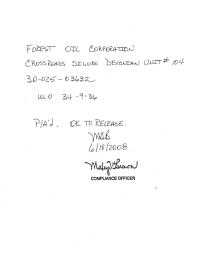 FOREST OIL CORPORATION
CROSSROADS SILURO DEVONIAN UNIT # 104
30-025-03632
ULO 34-9-36
P/A'd. OK TO RELEASE.
6/18/2008
COMPLIANCE OFFICER